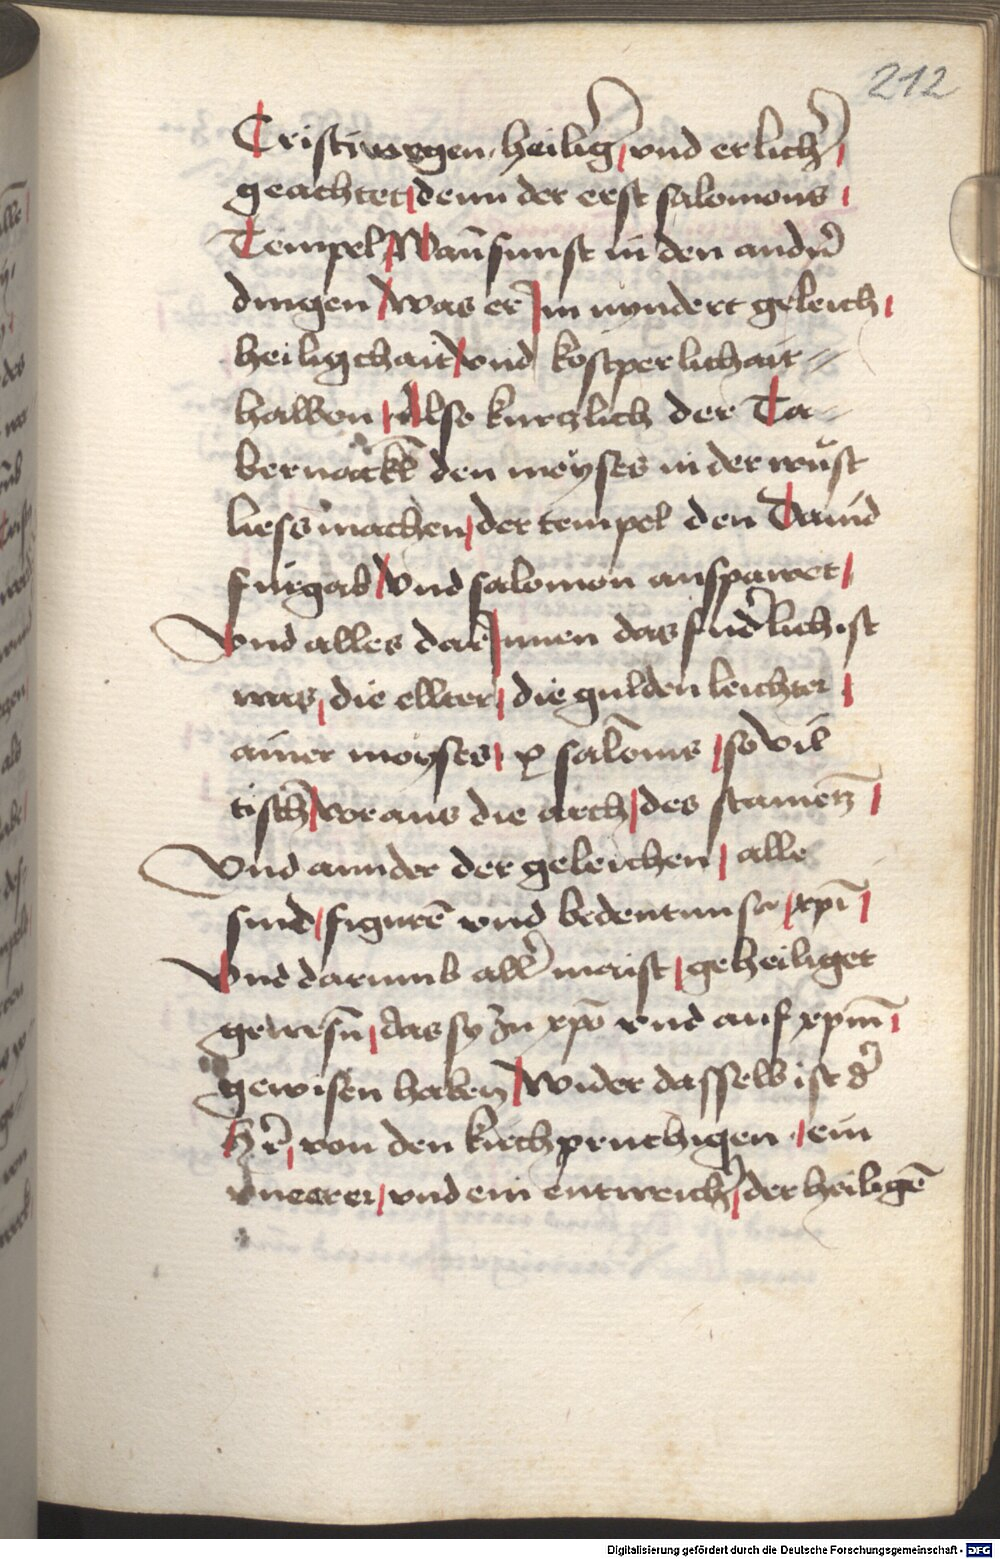 212
Cristi wegen, heilig̉, vnd erlich̉,
geachtet, denn der erst salomons,
Tempel, Wañ sunst in den andn̉
dingen was er Im nyndert geleich,
heiligchait vnd kostperlichait //
halben, Also kurczlich der Ta//
bernackl̄ den moyses in der wüst
liess machen, der tempel den Dauid
fürgab vnd salomon auspawet,
Vnd alles dar Innen das fud̉lich ist
was, die ellter, die gulden leichter,
ainer moyses, x salom̄s, so vil
tisch̄ voraus die arch, des stamen̄tz,
Vnd annder der geleichen, alle
sind, figurē vnd bedeutnusß xp̄i,
Vnd darumb all̉ maist, geheiliget
gewesn̄, das sy zu xp̄o vnd auf xp̄m̄,
gewisen haben, wider dasselb ist d̉
Hr̉, von den kirchpruchigen, ein
vneerer, vnd ein entweich̉, der heiligē
Digitalisierung gefördert durch die Deutsche Forschungsgemeinschaft - DFG